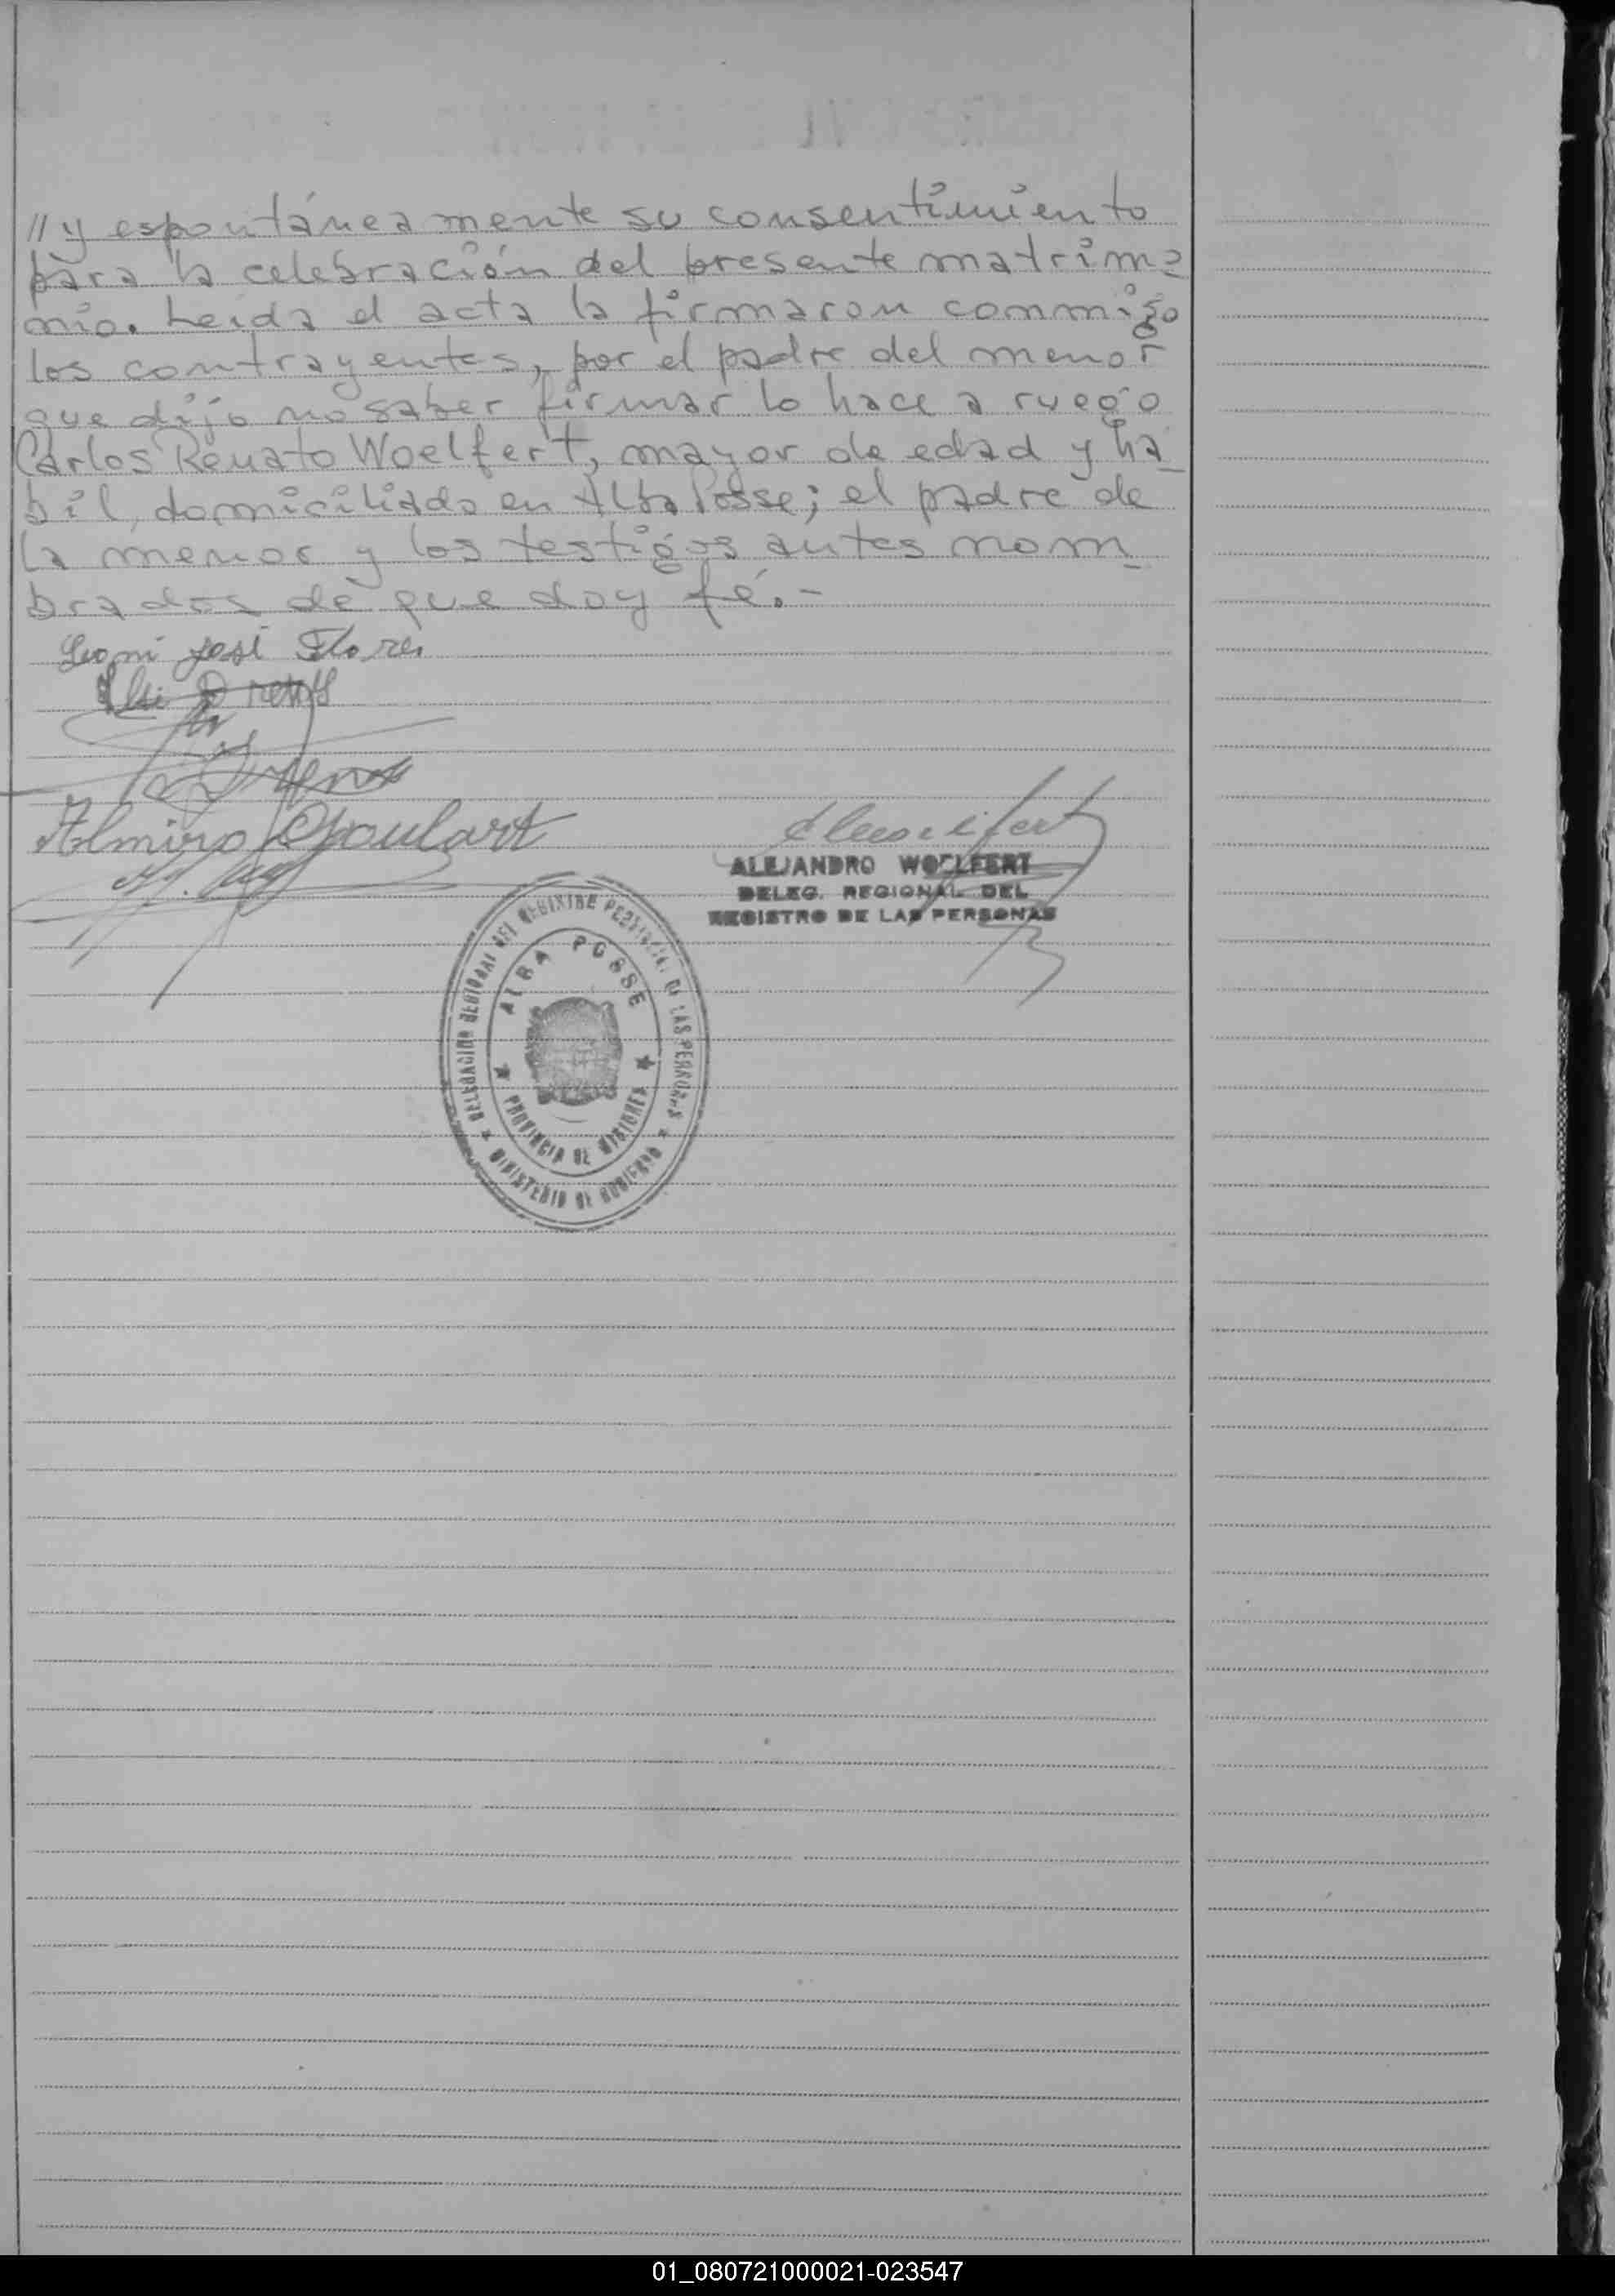 // y espontáneamente su consentimiento
para la celebración del presente matrimo
nio. Leída el acta la firmaron commigo
los contrayentes, por el padre del menor
que dijo no saber firmar lo hace a ruego
Carlos Renato Woelfert, mayor de edad y há
bil, domiciliado en Alba Posse; el padre de
la menor y los testigos antes nom
brados de que doy fé.-
José Flores
Almiro Goulart
ALEJANDRO WOELFERT
DELEG. REGIONAL DEL
REGISTRO DE LAS PERSONAS
DELEGACION REGIONAL DEL REGISTRO PROVINCIAL DE LAS PERSONAS
ALBA POSSE
PROVINCIA DE MISIONES
MINISTERIO DE GOBIERNO
01_080721000021-023547